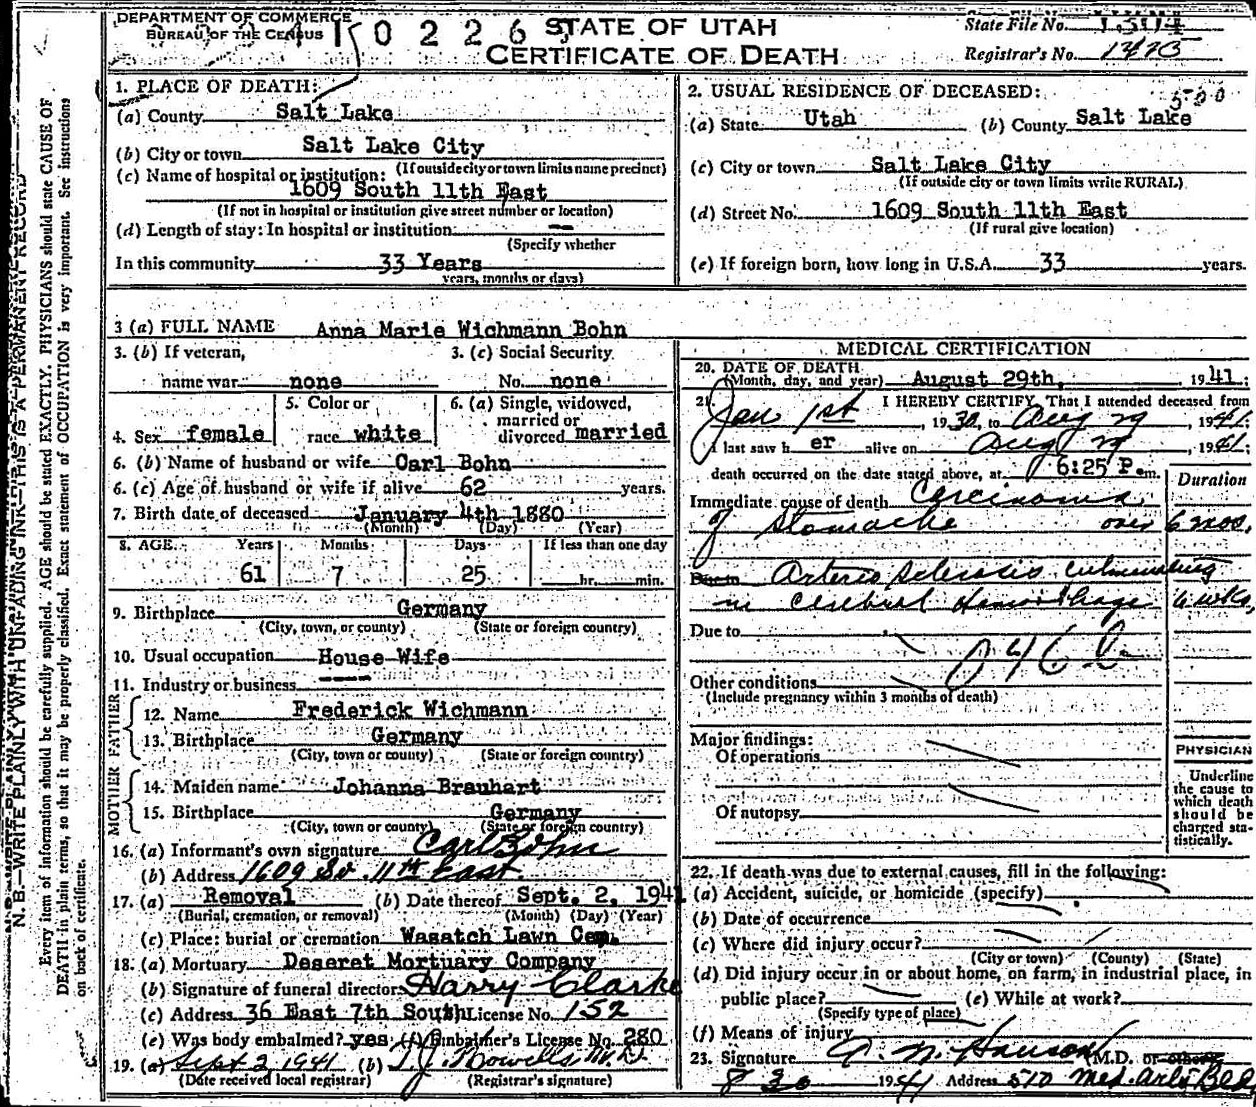 DEPARTMENT OF COMMERCE
BUREAU OF THE CENSUS
0 2 2 6
STATE OF UTAH
CERTIFICATE OF DEATH
State File No.
Registrar's No.
N. B.—WRITE PLAINLY WITH UNFADING INK—THIS IS A PERMANENT RECORD
Every item of information should be carefully supplied. AGE should be stated EXACTLY. PHYSICIANS should state CAUSE OF
DEATH in plain terms, so that it may be properly classified. Exact statement of OCCUPATION is very important. See instructions
on back of certificate.
1. PLACE OF DEATH:
(a) County Salt Lake
(b) City or town Salt Lake City
(If outside city or town limits name precinct)
(c) Name of hospital or institution:
1609 South 11th East
(If not in hospital or institution give street number or location)
(d) Length of stay: In hospital or institution --
(Specify whether
In this community 33 Years
years, months or days)
2. USUAL RESIDENCE OF DECEASED:
500
(a) State Utah (b) County Salt Lake
(c) City or town Salt Lake City
(If outside city or town limits write RURAL)
(d) Street No. 1609 South 11th East
(If rural give location)
(e) If foreign born, how long in U.S.A. 33 years.
3 (a) FULL NAME Anna Marie Wichmann Bohn
3. (b) If veteran, name war none
3. (c) Social Security No. none
4. Sex female
5. Color or race white
6. (a) Single, widowed, married or divorced married
6. (b) Name of husband or wife Carl Bohn
6. (c) Age of husband or wife if alive 62 years.
7. Birth date of deceased January 4th 1880
(Month) (Day) (Year)
8. AGE Years Months Days If less than one day
61 7 25 hr. min.
9. Birthplace Germany
(City, town, or county) (State or foreign country)
10. Usual occupation House Wife
11. Industry or business
FATHER
12. Name Frederick Wichmann
13. Birthplace Germany
(City, town or county) (State or foreign country)
MOTHER
14. Maiden name Johanna Brauhart
15. Birthplace Germany
(City, town or county) (State or foreign country)
16. (a) Informant's own signature Carl Bohn
(b) Address 1609 So. 11th East
17. (a) Removal (b) Date thereof Sept. 2, 1941
(Burial, cremation, or removal) (Month) (Day) (Year)
(c) Place: burial or cremation Wasatch Lawn Cem.
18. (a) Mortuary Deseret Mortuary Company
(b) Signature of funeral director Harry Clarke
(c) Address 36 East 7th South License No. 152
(e) Was body embalmed? yes (f) Embalmer's License No. 280
19. (a) Sept 2, 1941 (b) M.D.
(Date received local registrar) (Registrar's signature)
MEDICAL CERTIFICATION
20. DATE OF DEATH
(Month, day, and year) August 29th, 1941:
21. I HEREBY CERTIFY, That I attended deceased from
Jan 1st, 1930, to Aug 29, 1941:
I last saw her alive on Aug 29 1941;
death occurred on the date stated above, at 6:25 P. m.
Duration
Immediate cause of death Carcinoma
of Stomache over 6 mos.
Due to Arterio Sclerosis culminating
in Cerebral Hemorrhage 6 wks.
Due to
046 b
Other conditions
(Include pregnancy within 3 months of death)
Major findings:
Of operations
Of autopsy
PHYSICIAN
Underline
the cause to
which death
should be
charged sta-
tistically.
22. If death was due to external causes, fill in the following:
(a) Accident, suicide, or homicide (specify)
(b) Date of occurrence
(c) Where did injury occur?
(City or town) (County) (State)
(d) Did injury occur in or about home, on farm, in industrial place, in
public place? (e) While at work?
(Specify type of place)
(f) Means of injury
23. Signature M.D. or other
8 30 1941 Address 510 Med. Arts Bld